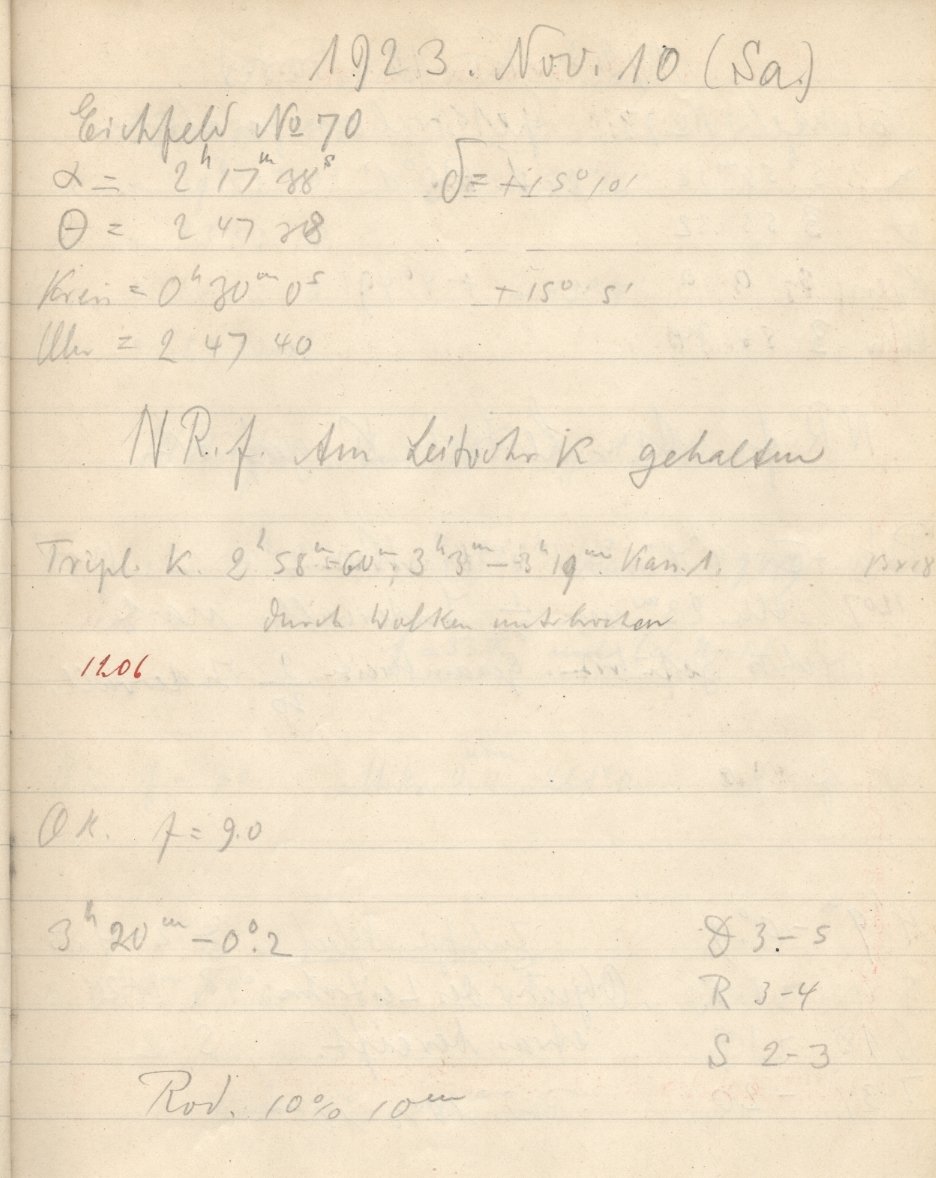 1923. Nov. 10 (Sa.)
Eichfeld № 70
α = 2ʰ 17ᵐ 38ˢ δ = +15° 10'
θ = 2 47 38
Kreis = 0ʰ 30ᵐ 0ˢ +15° 5'
Uhr = 2 47 40
N R. f. Am Leitrohr K gehalten
Tripl. K. 2ʰ 58ᵐ-60ᵐ, 3ʰ 3ᵐ - 3ʰ 19ᵐ Kass. 1.
durch Wolken unterbrochen
1206
f = 9.0
3ʰ 20ᵐ - 0°.2 D 3-5
R 3-4
S 2-3
Rod. 10% 10ᵐ